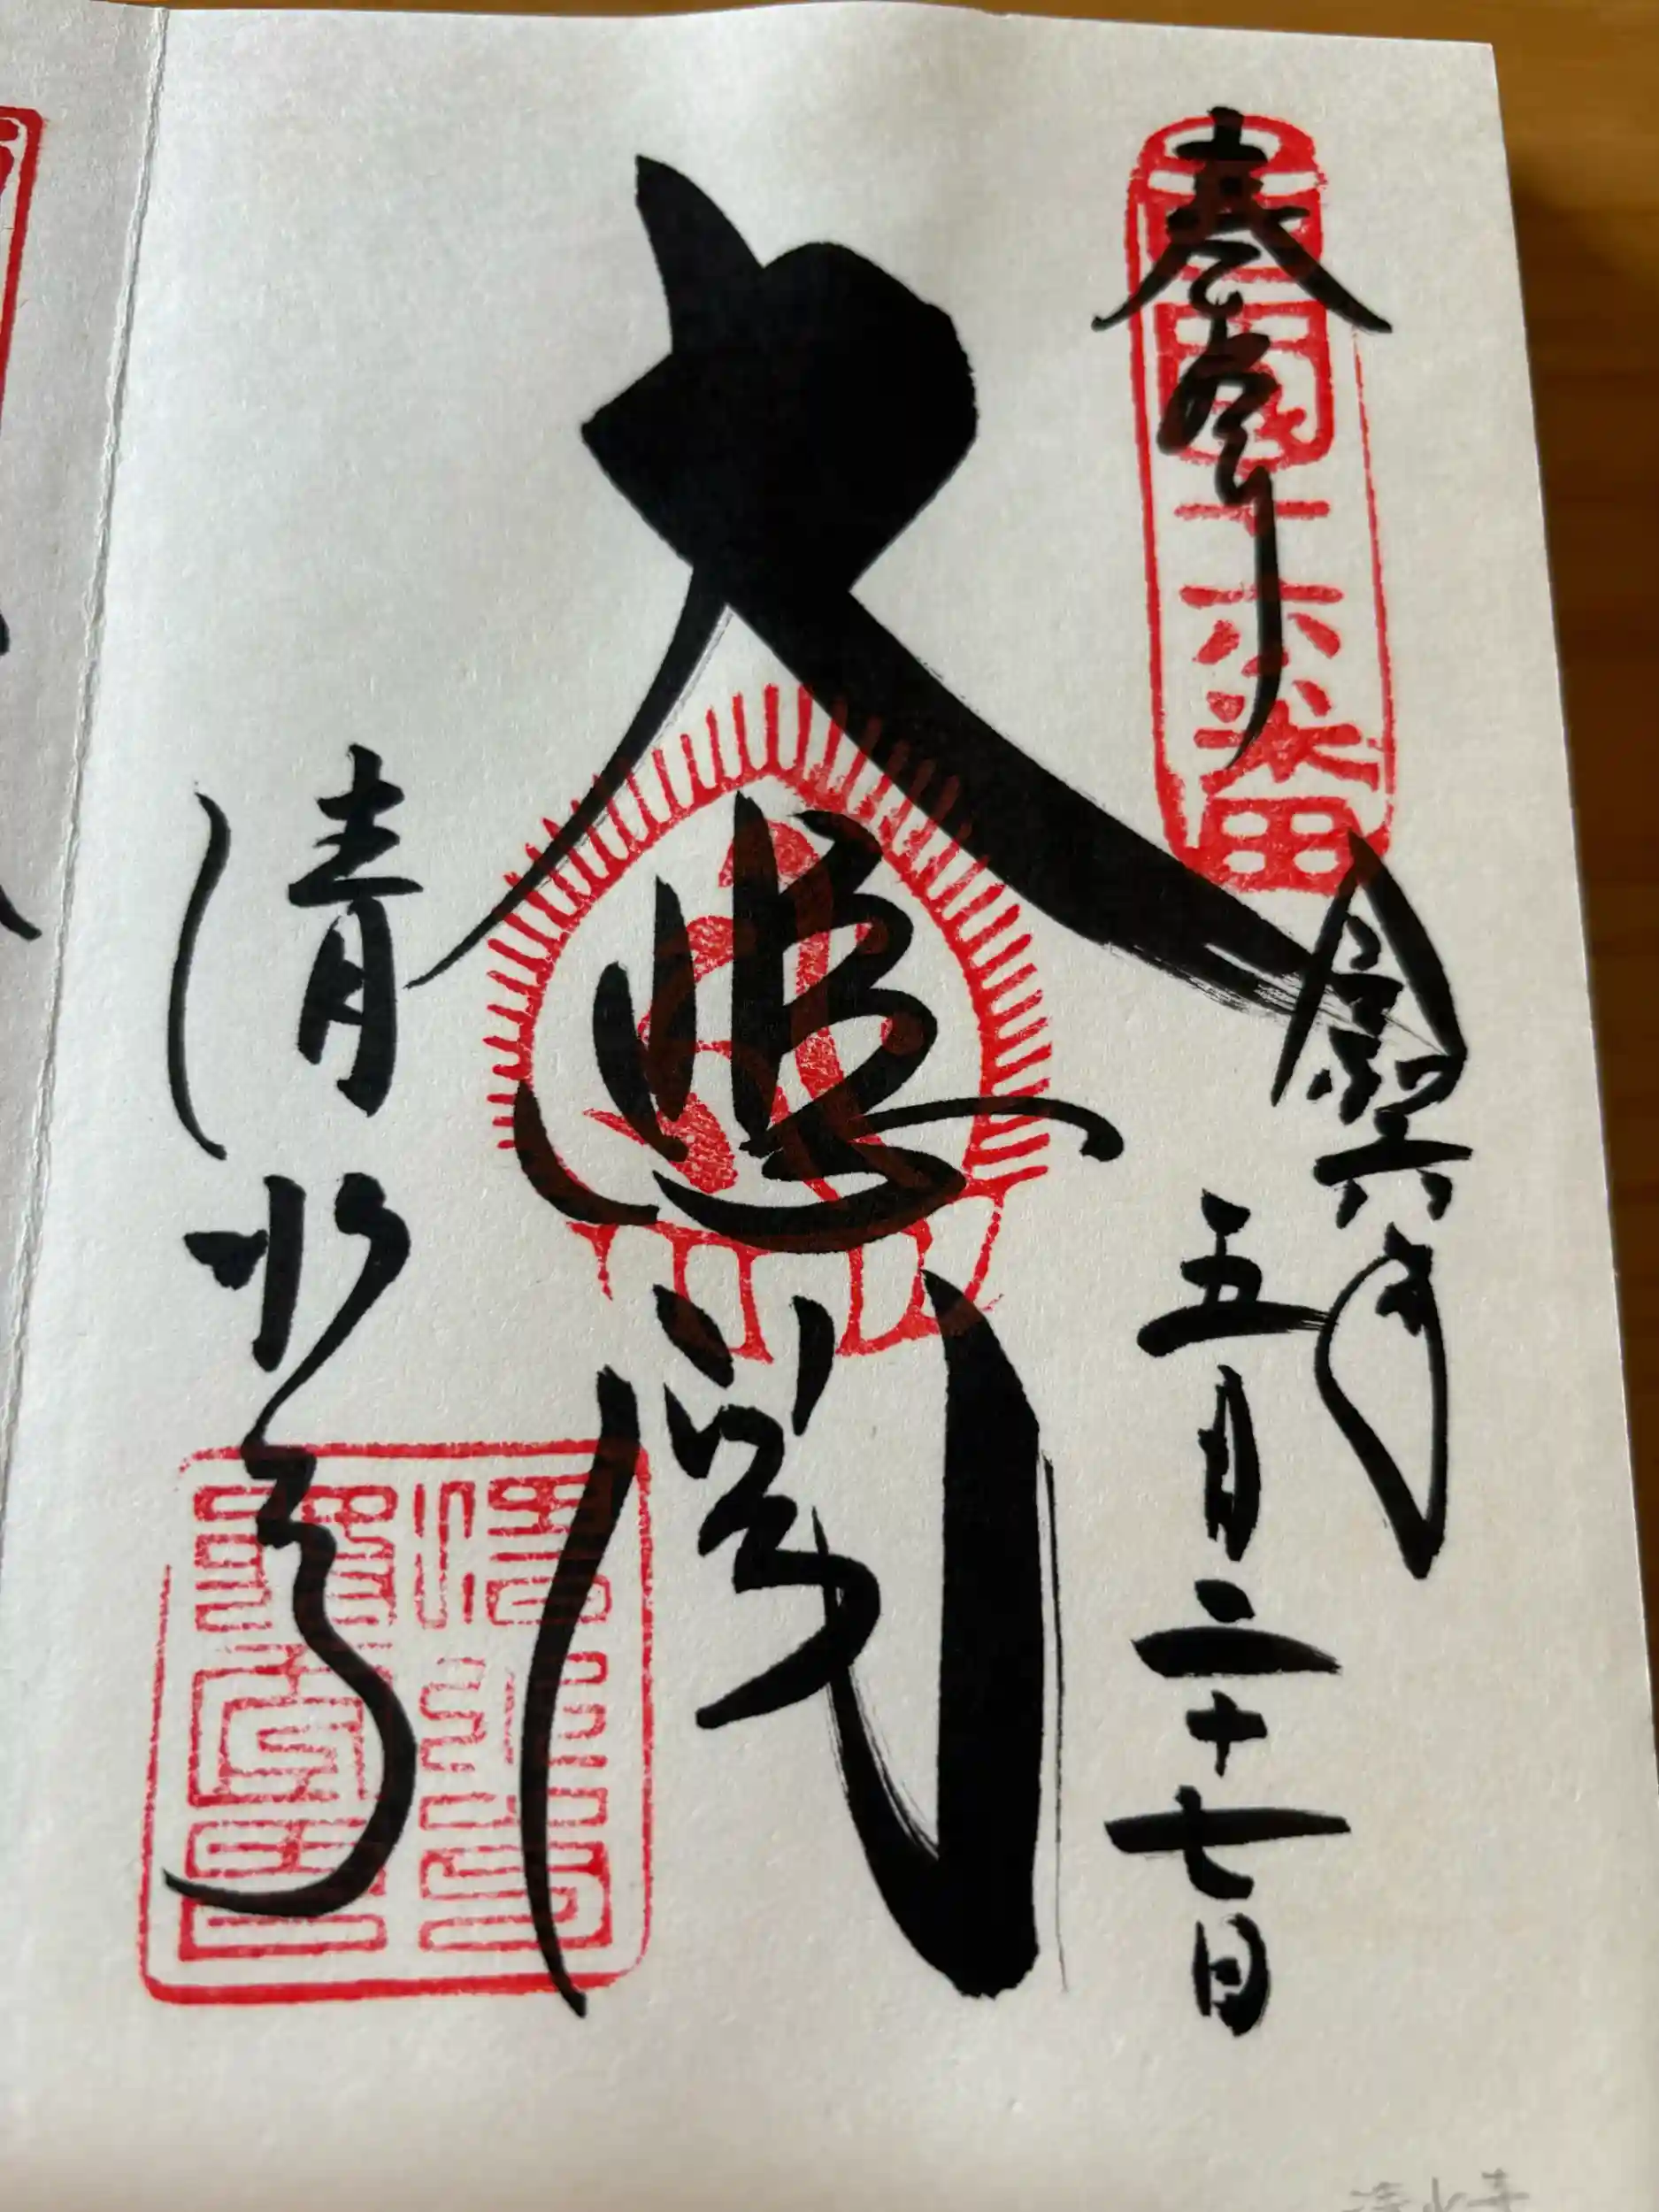 奉拝
西国十六番
令和六年
五月二十七日
大悲閣
清水寺
清水寺